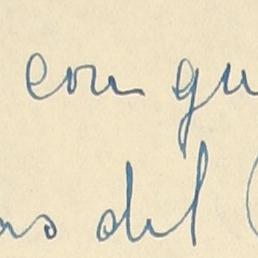 con qu
as del